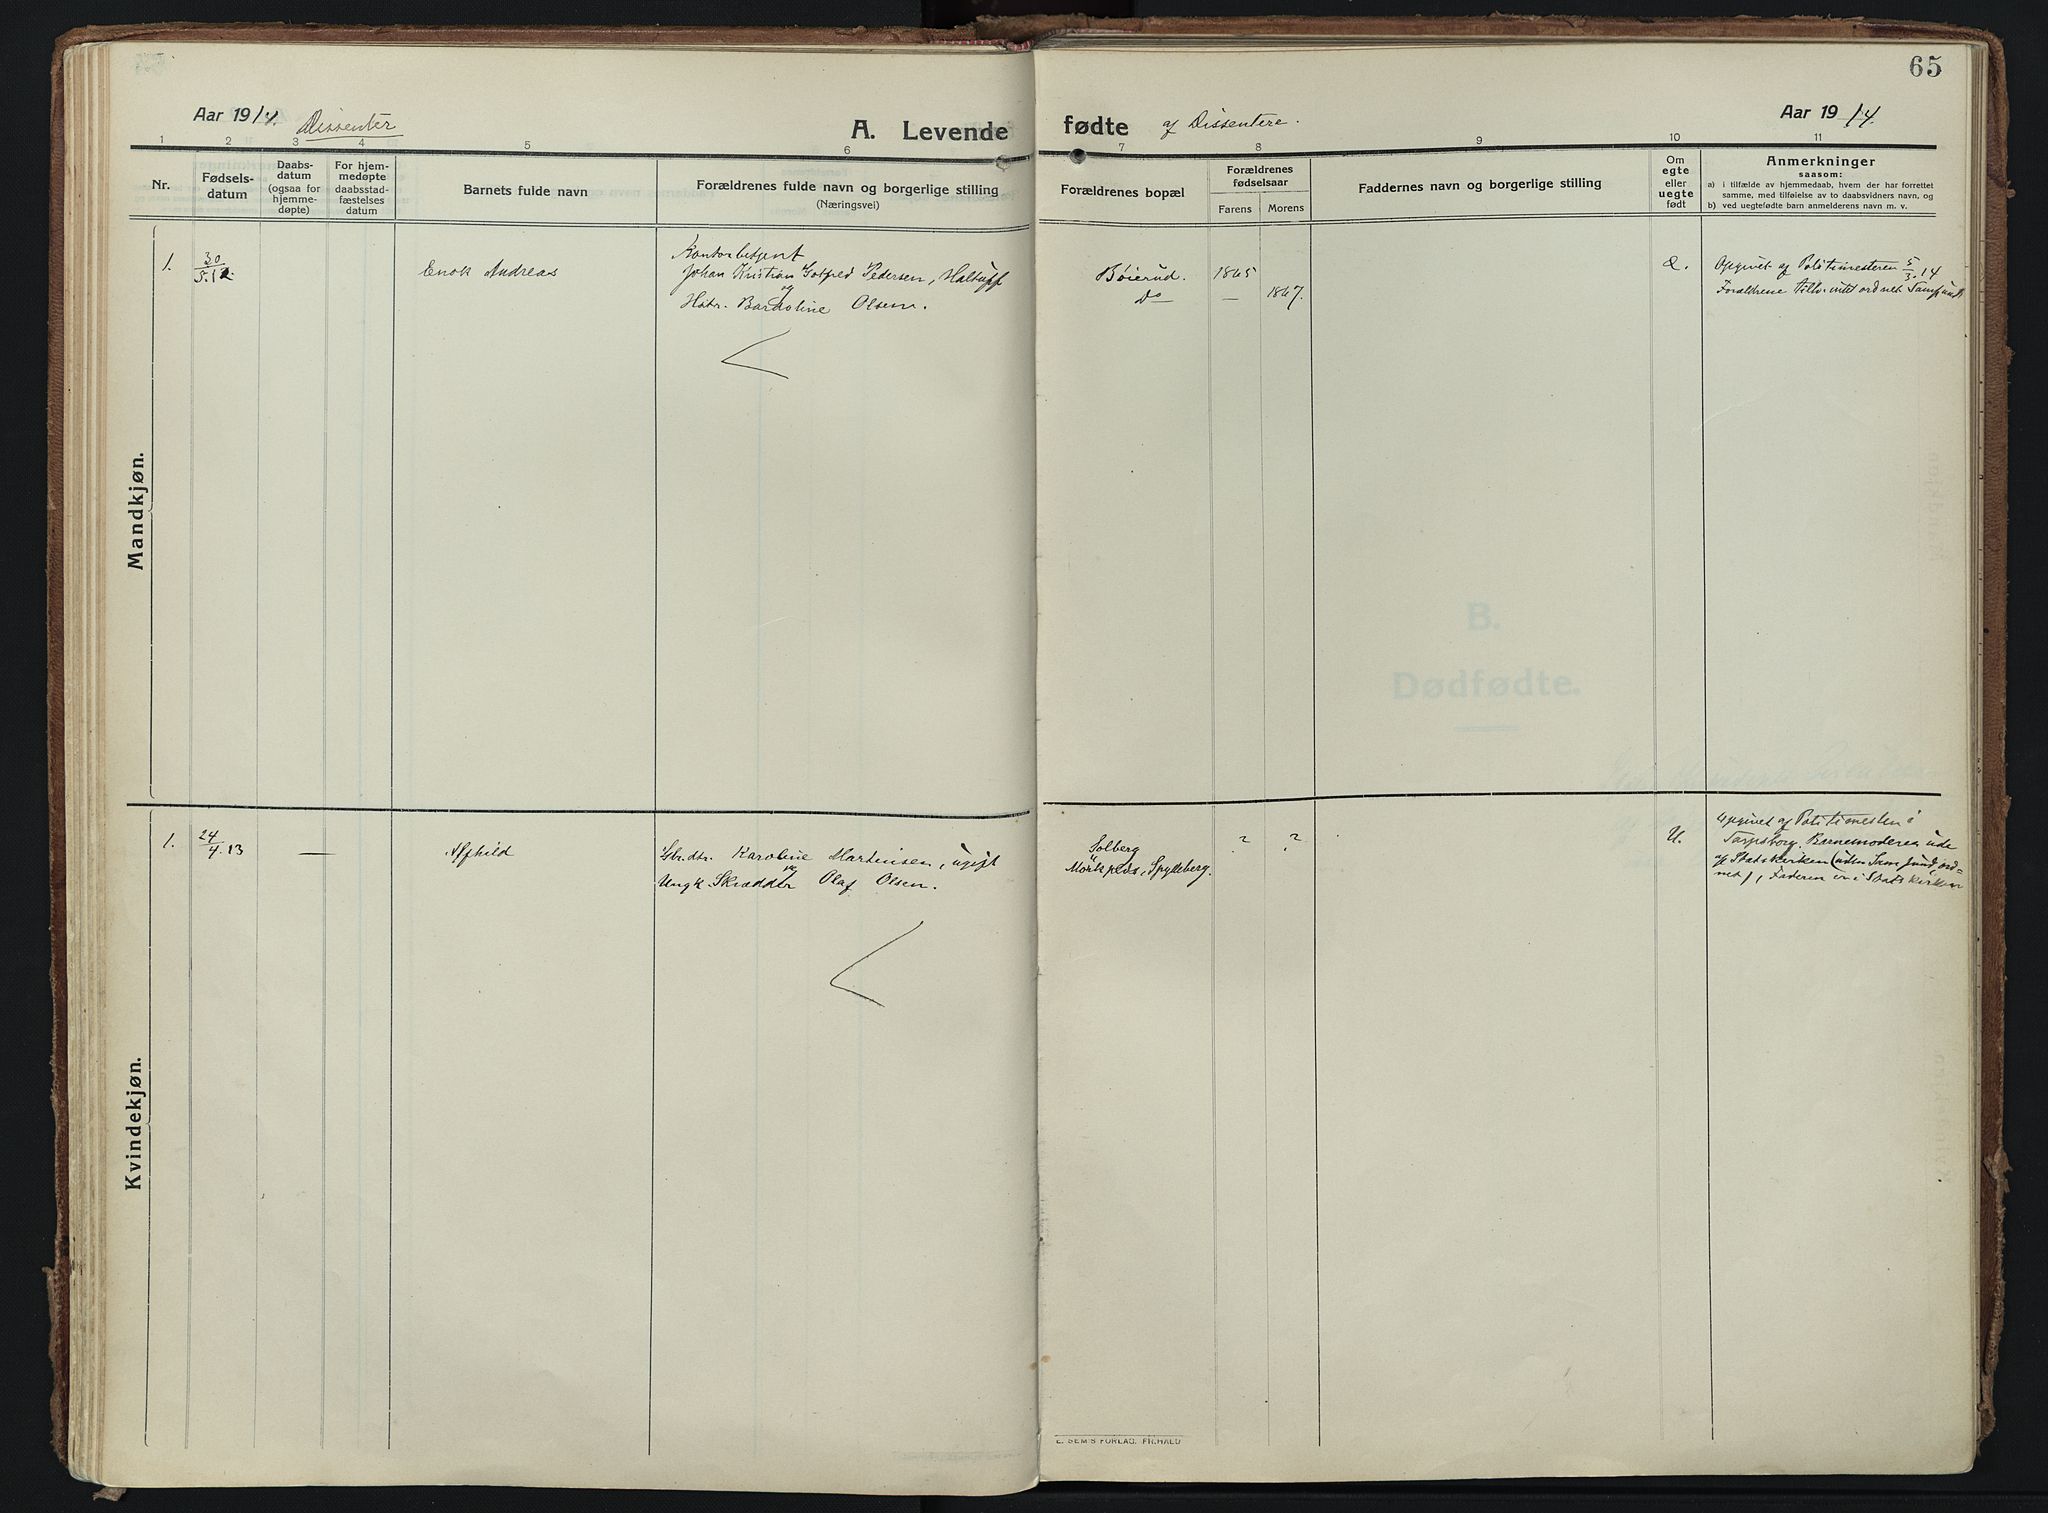 65
Aar 1914. Dissenter
A. Levende fødte af Dissentere.
Aar 1914
1 2 3 4 5 6 7 8 9 10 11
Nr.
Fødsels-
datum
Daabs-
datum
(ogsaa for
hjemme-
døpte)
For hjem-
medøpte
daabsstad-
fæstelses
datum
Barnets fulde navn
Forældrenes fulde navn og borgerlige stilling
(Næringsvei)
Forældrenes bopæl
Forældrenes
fødselsaar
Farens Morens
Faddernes navn og borgerlige stilling
Om
egte
eller
uegte
født
Anmerkninger
saasom:
a) i tilfælde av hjemmedaab, hvem der har forrettet
samme, med tilføielse av to daabsvidners navn, og
b) ved uegtefødte barn anmelderens navn m. v.
Mandkjøn.
1.
30/5.12.
Enok Andreas
Kontorbetjent
Johan Kristian Gotfred Pedersen,
og
Hstr. Bardoline Olsen.
Bøierud.
Do
1865
—
1867.
Opgivet af Politimesteren 5/3.14
Forældrene
B.
Dødfødte.
Kvindekjøn.
1.
24/4.13
—
Alfhild
Gbr.dtr. Karoline Martinsen, ugift
og
Ungk. Skrædder Olaf Olsen.
Solberg
Spydeberg.
?
?
U.
Opgivet af Politimesten i
Sarpsborg. Barnemoderen ude
af Statskirken (uden Samfund, ord-
net), Faderen er i Statskirken
E. SEM'S FORLAG, FR.HALD